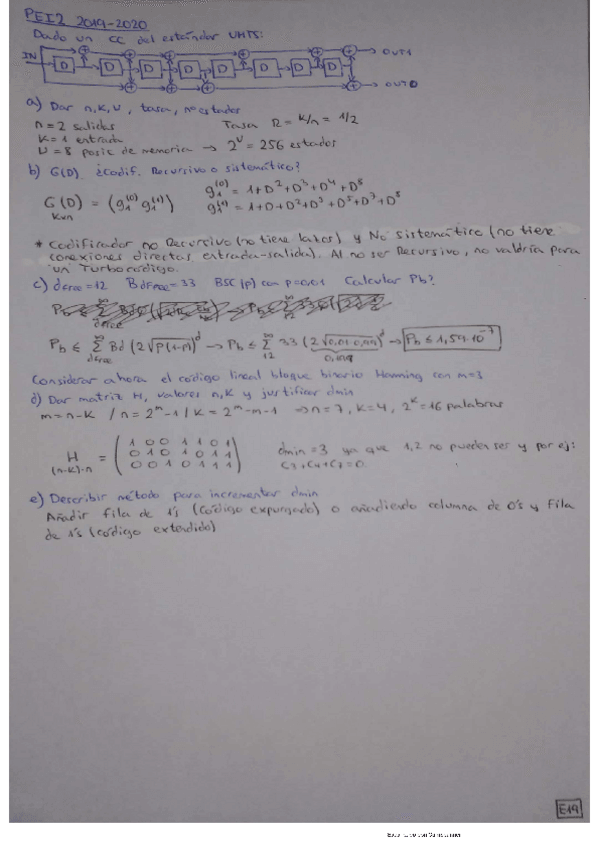 PEI2 2019-2020
Dado un CC del estándar UMTS:
IN D D D D D D D D OUT1
OUT0
a) Dar n, K, U, tasa, nº estados
n=2 salidas Tasa R = K/n = 1/2
K=1 entrada
U=8 posic de memoria → 2^U = 256 estados
b) G(D) ¿Codif. Recursivo o sistemático?
G(D) = (g1^(0) g1^(1)) g1^(0) = 1+D^2+D^3+D^4+D^8
Kxn g1^(1) = 1+D+D^2+D^3+D^5+D^7+D^8
* Codificador no Recursivo (no tiene lazos) y No sistemático (no tiene
conexiones directas entrada-salida). Al no ser Recursivo, no valdría para
un Turbocódigo.
c) dfree=12 Bdfree=33 BSC(p) con p=0,01 Calcular Pb?
Pb ≤ Σ_{dfree}^{∞} Bd (2√p(1-p))^d → Pb ≤ Σ_{12}^{∞} 33 (2√0,01·0,99)^d → Pb ≤ 1,59·10^-7
0,199
Considerar ahora el código lineal bloque binario Hamming con m=3
d) Dar matriz H, valores n, K y justificar dmin
m=n-K / n=2^m-1 / K=2^m-m-1 ⇒ n=7, K=4, 2^K=16 palabras
H = ( 1 0 0 1 1 0 1 dmin=3 ya que 1,2 no pueden ser y por ej:
(n-K)·n 0 1 0 1 0 1 1 C3+C4+C7=0
0 0 1 0 1 1 1 )
e) Describir método para incrementar dmin
Añadir fila de 1's (código expurgado) o añadiendo columna de 0's y Fila
de 1's (código extendido)
E19